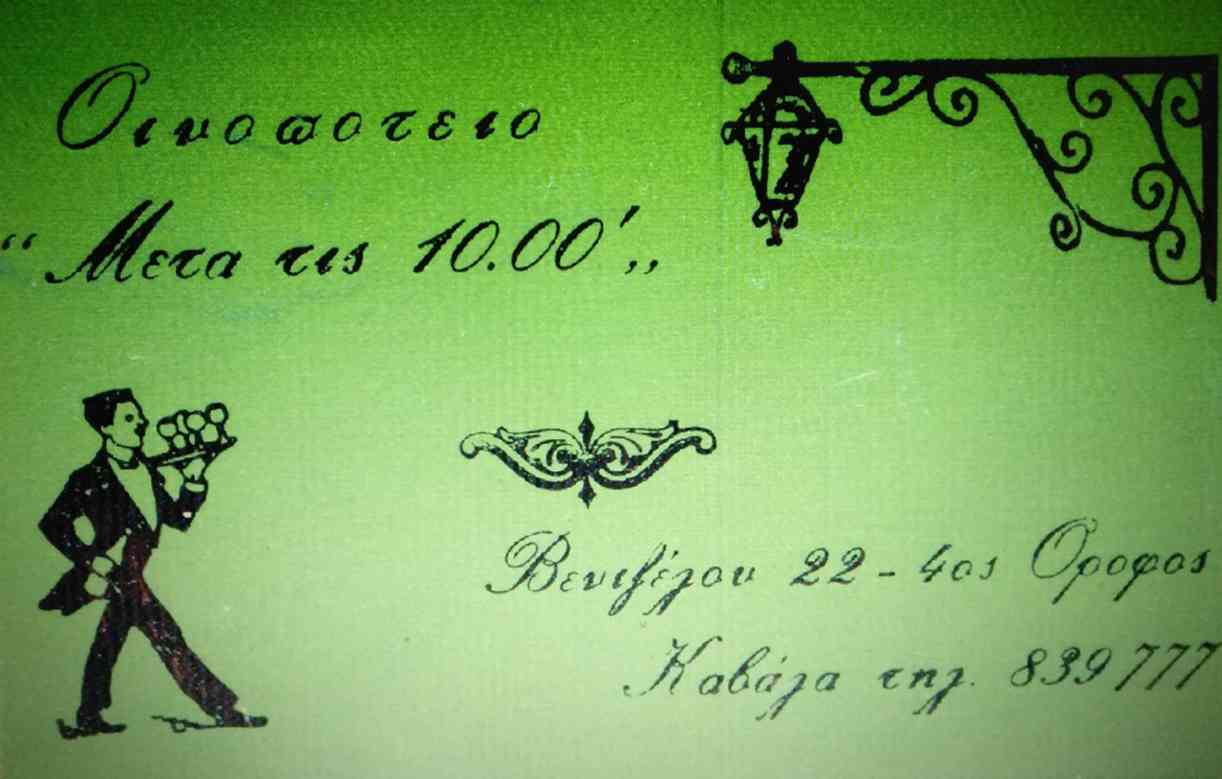 Οινοποτειο
“Μετα τις 10.00'„
Βενιζέλου 22 - 4ος Οροφος
Καβάλα τηλ. 839777